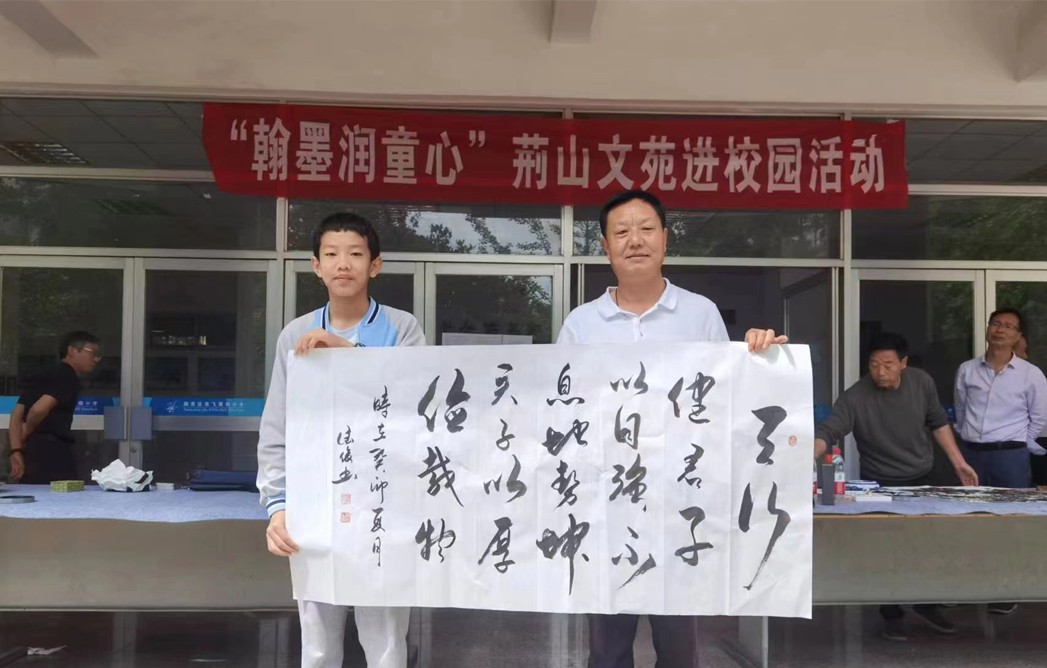 “翰墨润童心”荊山文苑进校园活动
天行
健君子
以自強不
息地勢坤
君子以厚
德載物
時在癸卯夏月